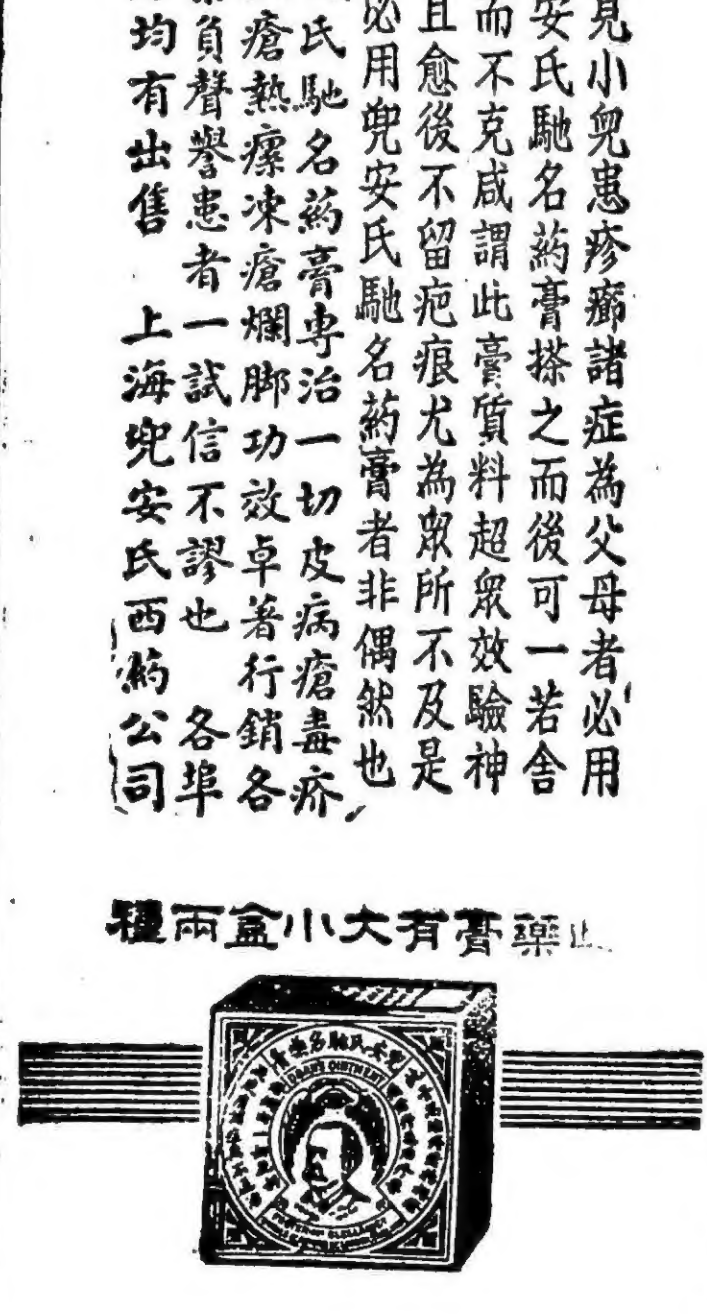 見小兒患疹癤諸症為父母者必用
安氏馳名葯膏搽之而後可一若舍
而不克咸謂此膏質料超眾效驗神
且愈後不留疤痕尤為眾所不及是
必用兜安氏馳名葯膏者非偶然也
氏馳名葯膏專治一切皮病瘡毒疥
瘡熱瘰凍瘡爛脚功效卓著行銷各
負聲譽患者一試信不謬也 各埠
均有出售 上海兜安氏西葯公司
藥膏有大小盒兩種
兜安氏馳名藥膏
DOAN'S OINTMENT